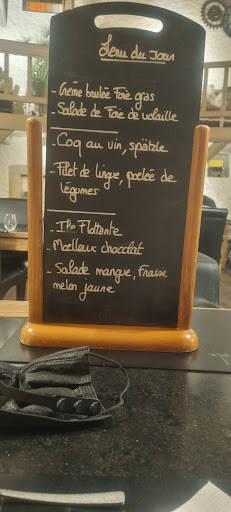 Menu du Jour
- Crème brulée Foie gras
- Salade de Foie de volaille
- Coq au vin, spätzle
- Filet de lingue, poelée de
légumes
- Ile Flottante
- Moelleux chocolat
- Salade mangue, Fraise
melon jaune